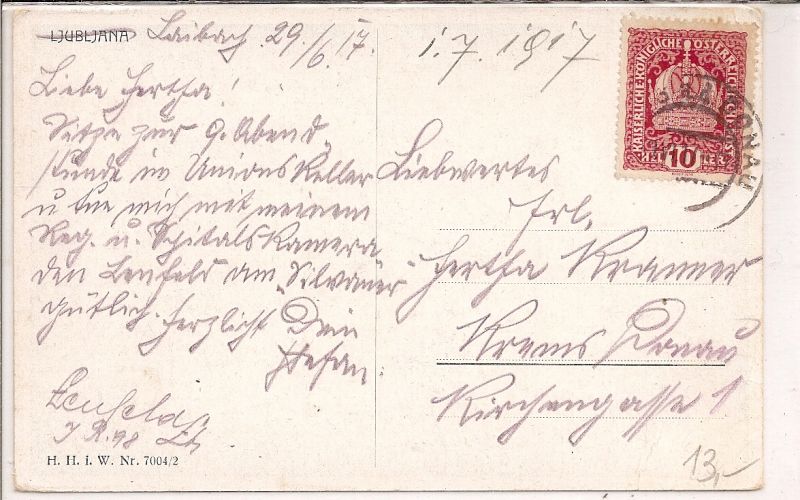 LJUBLJANA Laibach 29./6.17.
Liebe Hertha!
Sitze zur 9. Abend
stunde im Unionskeller
u tue mich mit meinem
Reg. u. Spitalskamera
den Lenfeld am "Silvaner"
gütlich. Herzlichst Dein
Stefan.
Lenfeld
I.R. 98
H. H. i. W. Nr. 7004/2
1.7.1917
KAISERLICHE KÖNIGLICHE ÖSTERREICHISCHE POST
HELLER 10 HELLER
DONAU
Liebwertes
Frl.
Hertha Kramer
Krems Donau
Kirchengasse 1
13,-